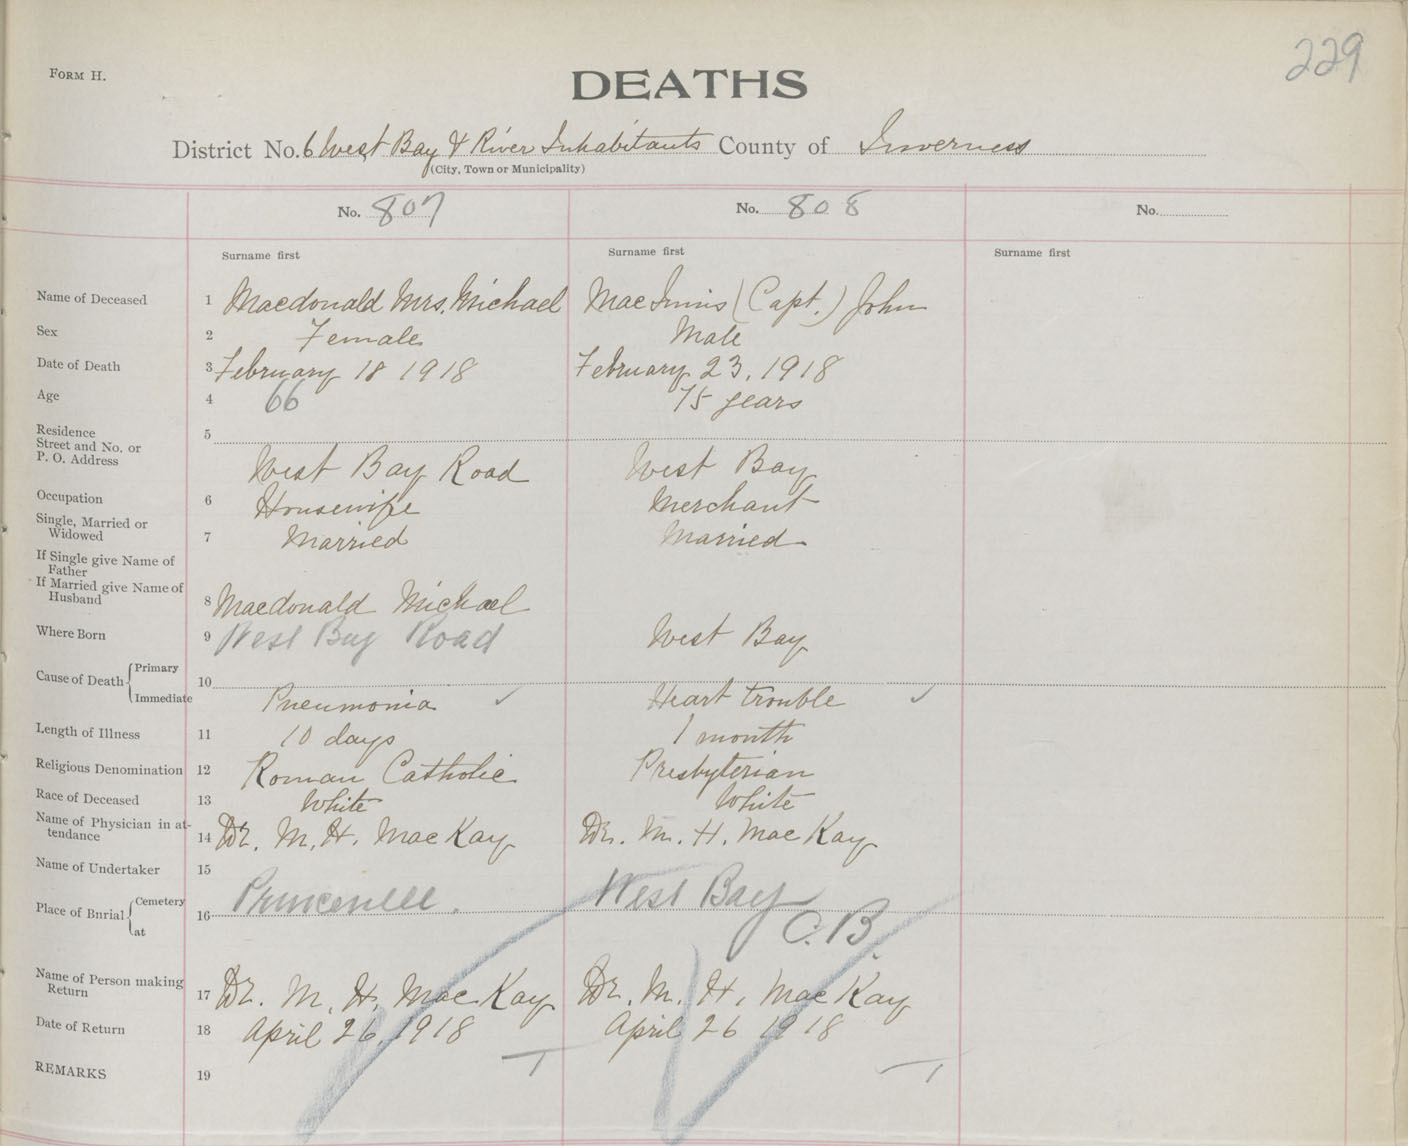 229
FORM H.
DEATHS
District No. 6 West Bay & River Inhabitants County of Inverness
(City, Town or Municipality)
No. 807 No. 808 No.
Surname first Surname first Surname first
Name of Deceased 1 Macdonald Mrs. Michael MacInnis (Capt.) John
Sex 2 Female Male
Date of Death 3 February 18 1918 February 23, 1918
Age 4 66 75 years
Residence 5
Street and No. or
P. O. Address West Bay Road West Bay
Occupation 6 Housewife Merchant
Single, Married or
Widowed 7 Married Married
If Single give Name of
Father
If Married give Name of
Husband 8 Macdonald Michael
Where Born 9 West Bay Road West Bay
Cause of Death Primary 10
Immediate Pneumonia ✓ Heart trouble ✓
Length of Illness 11 10 days 1 month
Religious Denomination 12 Roman Catholic Presbyterian
Race of Deceased 13 White White
Name of Physician in at-
tendance 14 Dr. M. H. MacKay Dr. M. H. MacKay
Name of Undertaker 15
Place of Burial Cemetery 16 Princeville. West Bay
at C.B.
Name of Person making
Return 17 Dr. M. H. MacKay Dr. M. H. MacKay
Date of Return 18 April 26, 1918 April 26 1918
REMARKS 19